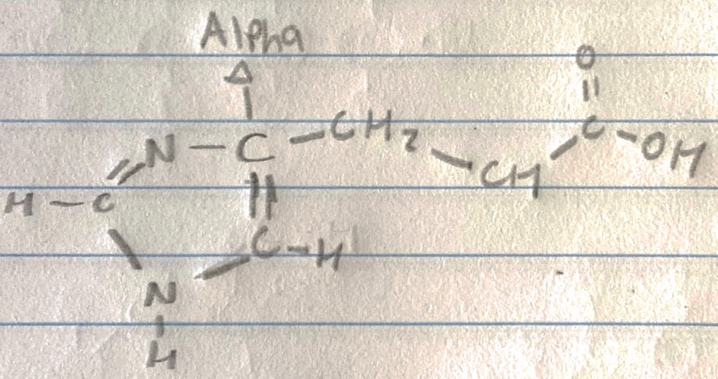 Alpha
O
N — C — CH2 — CH — C — OH
H — C
C — H
N
H